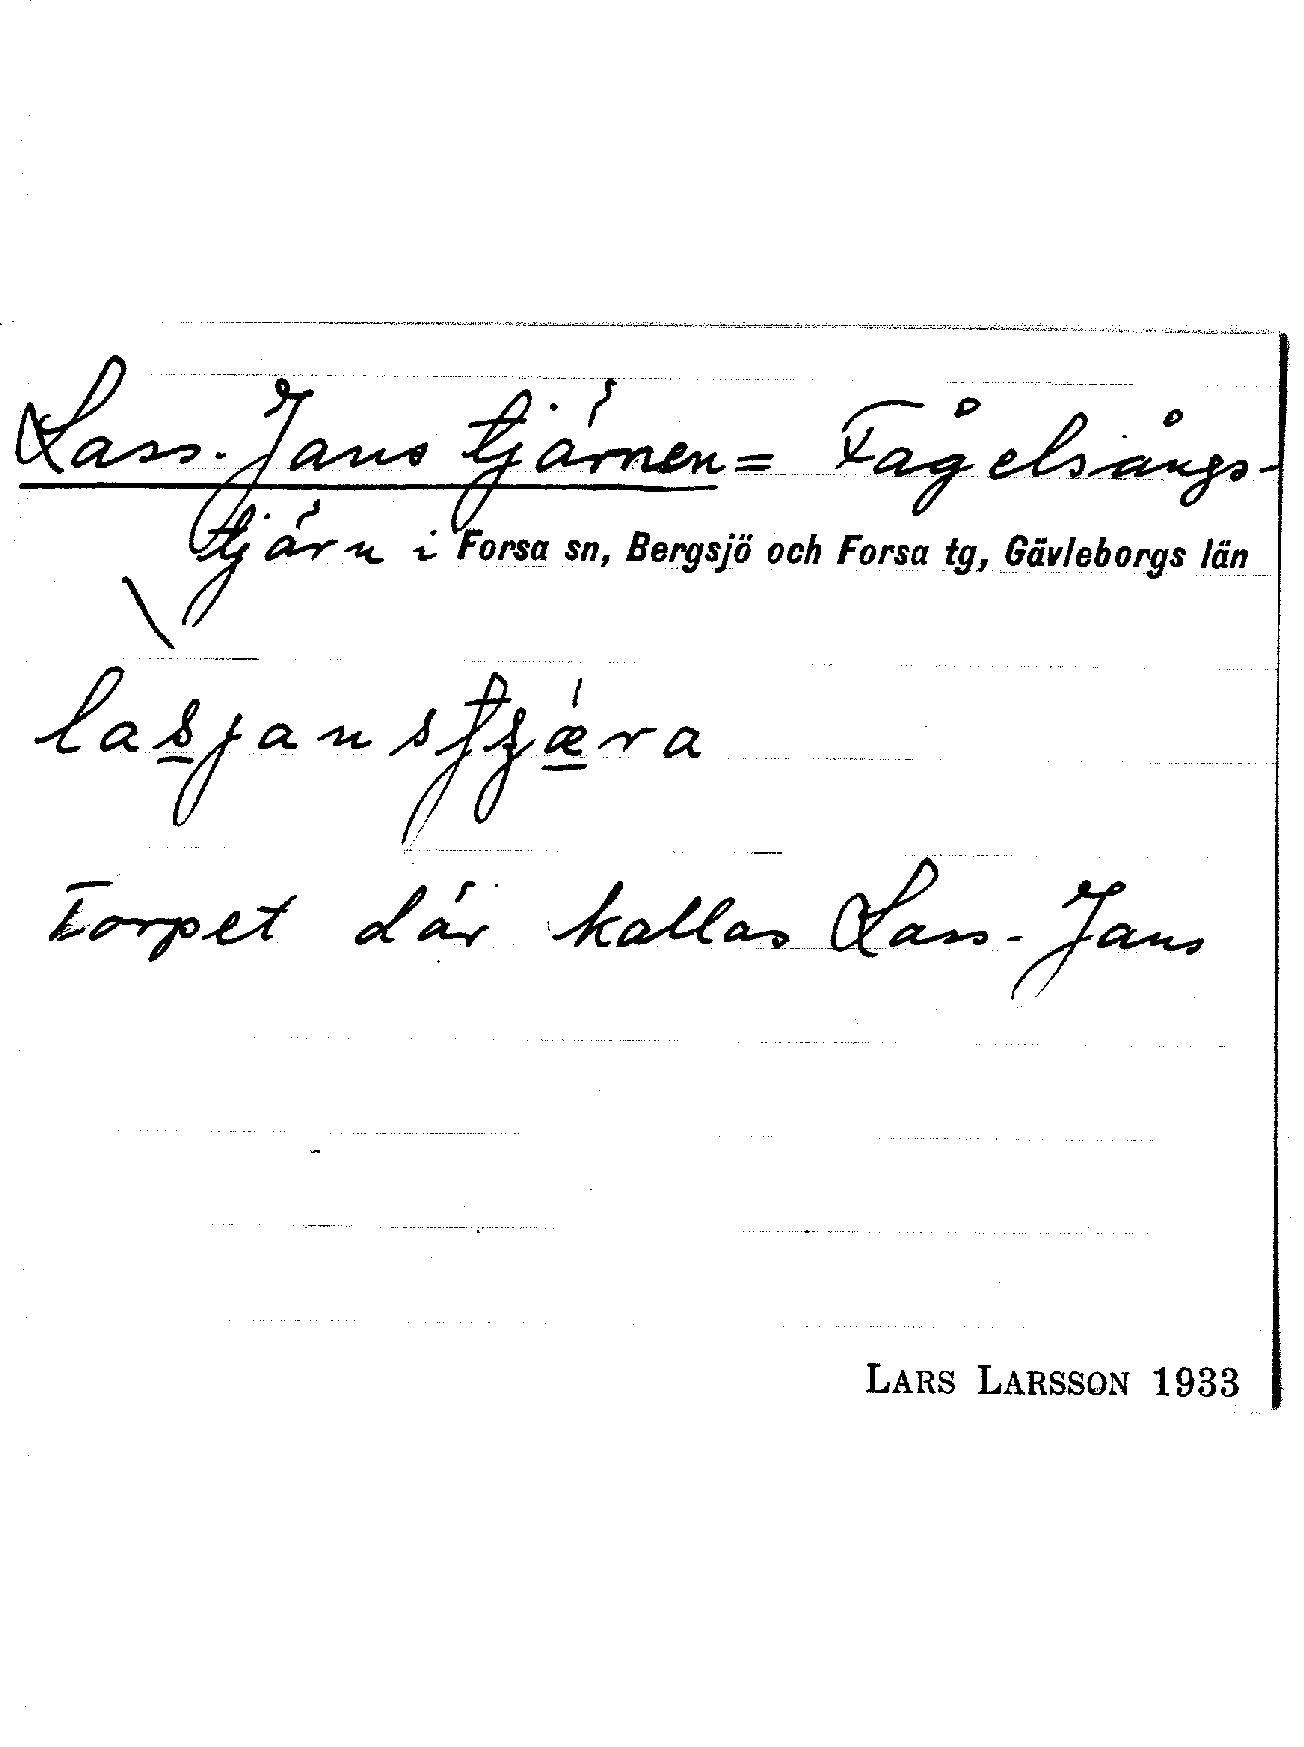 Lass-Jans tjärnen = Fågelsångs-
tjärn i Forsa sn, Bergsjö och Forsa tg, Gävleborgs län
lasjanstjæra
Torpet där kallas Lass-Jans
LARS LARSSON 1933